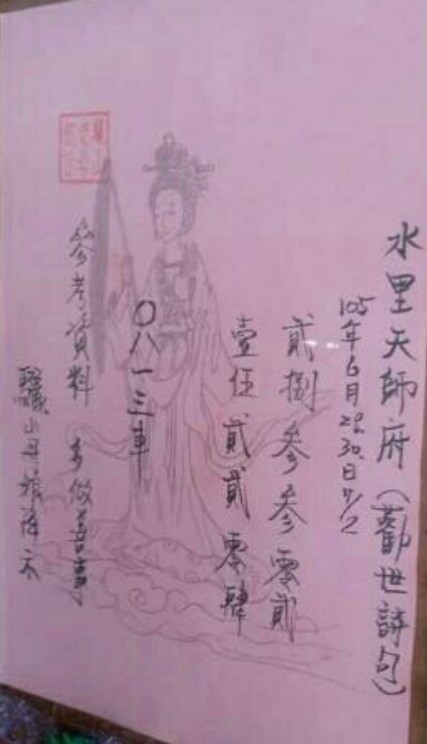 水里天師府(勸世詩句)
105年6月28.30日7/2
貳捌 參參 零貳
壹伍 貳貳 零肆
〇八一三車
參考資料 多做善事
山母娘落天